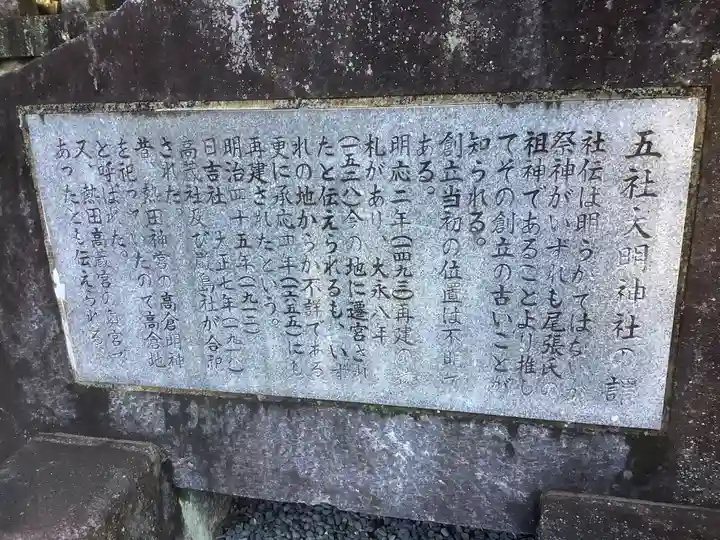 五社大明神社の譜
社伝は明らかではないが
祭神がいずれも尾張氏の
祖神であることより推し
てその創立の古いことが
知られる。
創立当初の位置は不明で
ある。
明応二年(一四九三)再建の
札があり、大永八年
(一五二八)今の地に遷宮され
たと伝えられるも、いず
れの地からか不詳である
更に承応四年(一六五五)にも
再建されたという。
明治四十五年(一九一二)
日吉社、大正七年(一九一八)
高蔵社及び厳島社が合祀
された。
昔、熱田神宮の高倉明神
を祀っていたので高倉地
と呼ばれた。
又、熱田高蔵宮の
あったとも伝えられる